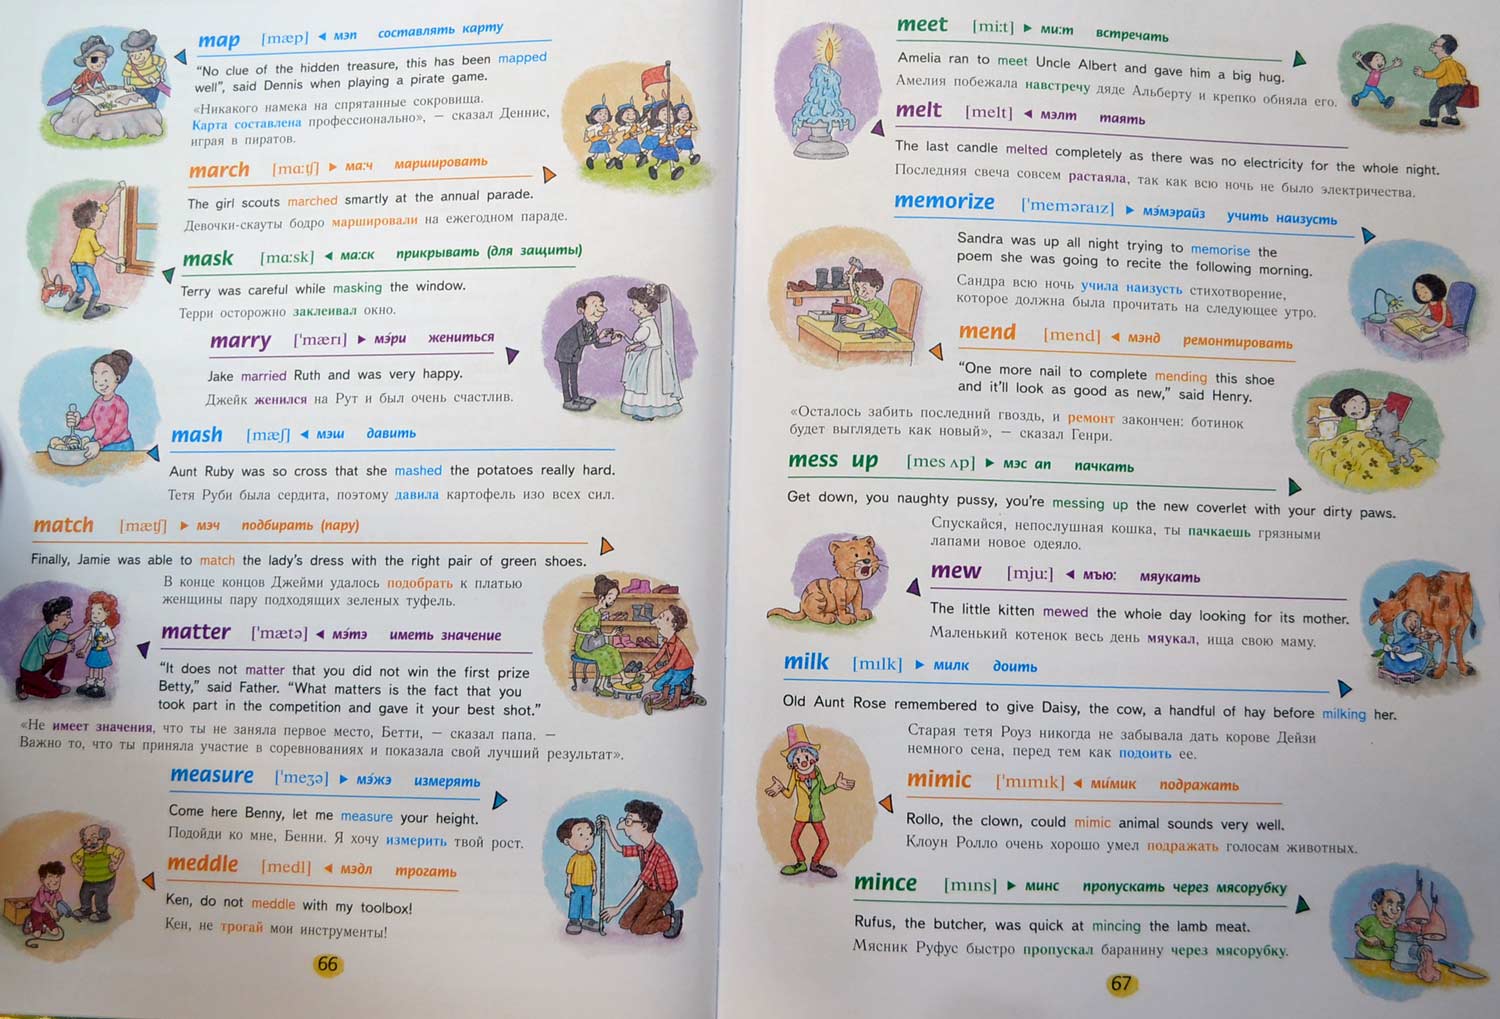 map [mæp] ◄ мэп составлять карту
“No clue of the hidden treasure, this has been mapped
well”, said Dennis when playing a pirate game.
«Никакого намека на спрятанные сокровища.
Карта составлена профессионально», — сказал Деннис,
играя в пиратов.
march [mɑ:tʃ] ► ма:ч маршировать
The girl scouts marched smartly at the annual parade.
Девочки-скауты бодро маршировали на ежегодном параде.
mask [mɑ:sk] ◄ ма:ск прикрывать (для защиты)
Terry was careful while masking the window.
Терри осторожно заклеивал окно.
marry ['mærı] ► мэ́ри жениться
Jake married Ruth and was very happy.
Джейк женился на Рут и был очень счастлив.
mash [mæʃ] ◄ мэш давить
Aunt Ruby was so cross that she mashed the potatoes really hard.
Тетя Руби была сердита, поэтому давила картофель изо всех сил.
match [mætʃ] ► мэч подбирать (пару)
Finally, Jamie was able to match the lady’s dress with the right pair of green shoes.
В конце концов Джейми удалось подобрать к платью
женщины пару подходящих зеленых туфель.
matter ['mætə] ◄ мэ́тэ иметь значение
“It does not matter that you did not win the first prize
Betty,” said Father. “What matters is the fact that you
took part in the competition and gave it your best shot.”
«Не имеет значения, что ты не заняла первое место, Бетти, — сказал папа. —
Важно то, что ты приняла участие в соревнованиях и показала свой лучший результат».
measure ['meʒə] ► мэ́жэ измерять
Come here Benny, let me measure your height.
Подойди ко мне, Бенни. Я хочу измерить твой рост.
meddle [medl] ◄ мэдл трогать
Ken, do not meddle with my toolbox!
Кен, не трогай мои инструменты!
66
meet [mi:t] ► ми:т встречать
Amelia ran to meet Uncle Albert and gave him a big hug.
Амелия побежала навстречу дяде Альберту и крепко обняла его.
melt [melt] ◄ мэлт таять
The last candle melted completely as there was no electricity for the whole night.
Последняя свеча совсем растаяла, так как всю ночь не было электричества.
memorize ['meməraız] ► мэ́мэрайз учить наизусть
Sandra was up all night trying to memorise the
poem she was going to recite the following morning.
Сандра всю ночь учила наизусть стихотворение,
которое должна была прочитать на следующее утро.
mend [mend] ◄ мэнд ремонтировать
“One more nail to complete mending this shoe
and it’ll look as good as new,” said Henry.
«Осталось забить последний гвоздь, и ремонт закончен: ботинок
будет выглядеть как новый», — сказал Генри.
mess up [mes ʌp] ► мэс ап пачкать
Get down, you naughty pussy, you’re messing up the new coverlet with your dirty paws.
Спускайся, непослушная кошка, ты пачкаешь грязными
лапами новое одеяло.
mew [mju:] ◄ мъю: мяукать
The little kitten mewed the whole day looking for its mother.
Маленький котенок весь день мяукал, ища свою маму.
milk [mılk] ► милк доить
Old Aunt Rose remembered to give Daisy, the cow, a handful of hay before milking her.
Старая тетя Роуз никогда не забывала дать корове Дейзи
немного сена, перед тем как подоить ее.
mimic ['mımık] ◄ ми́мик подражать
Rollo, the clown, could mimic animal sounds very well.
Клоун Ролло очень хорошо умел подражать голосам животных.
mince [mıns] ► минс пропускать через мясорубку
Rufus, the butcher, was quick at mincing the lamb meat.
Мясник Руфус быстро пропускал баранину через мясорубку.
67